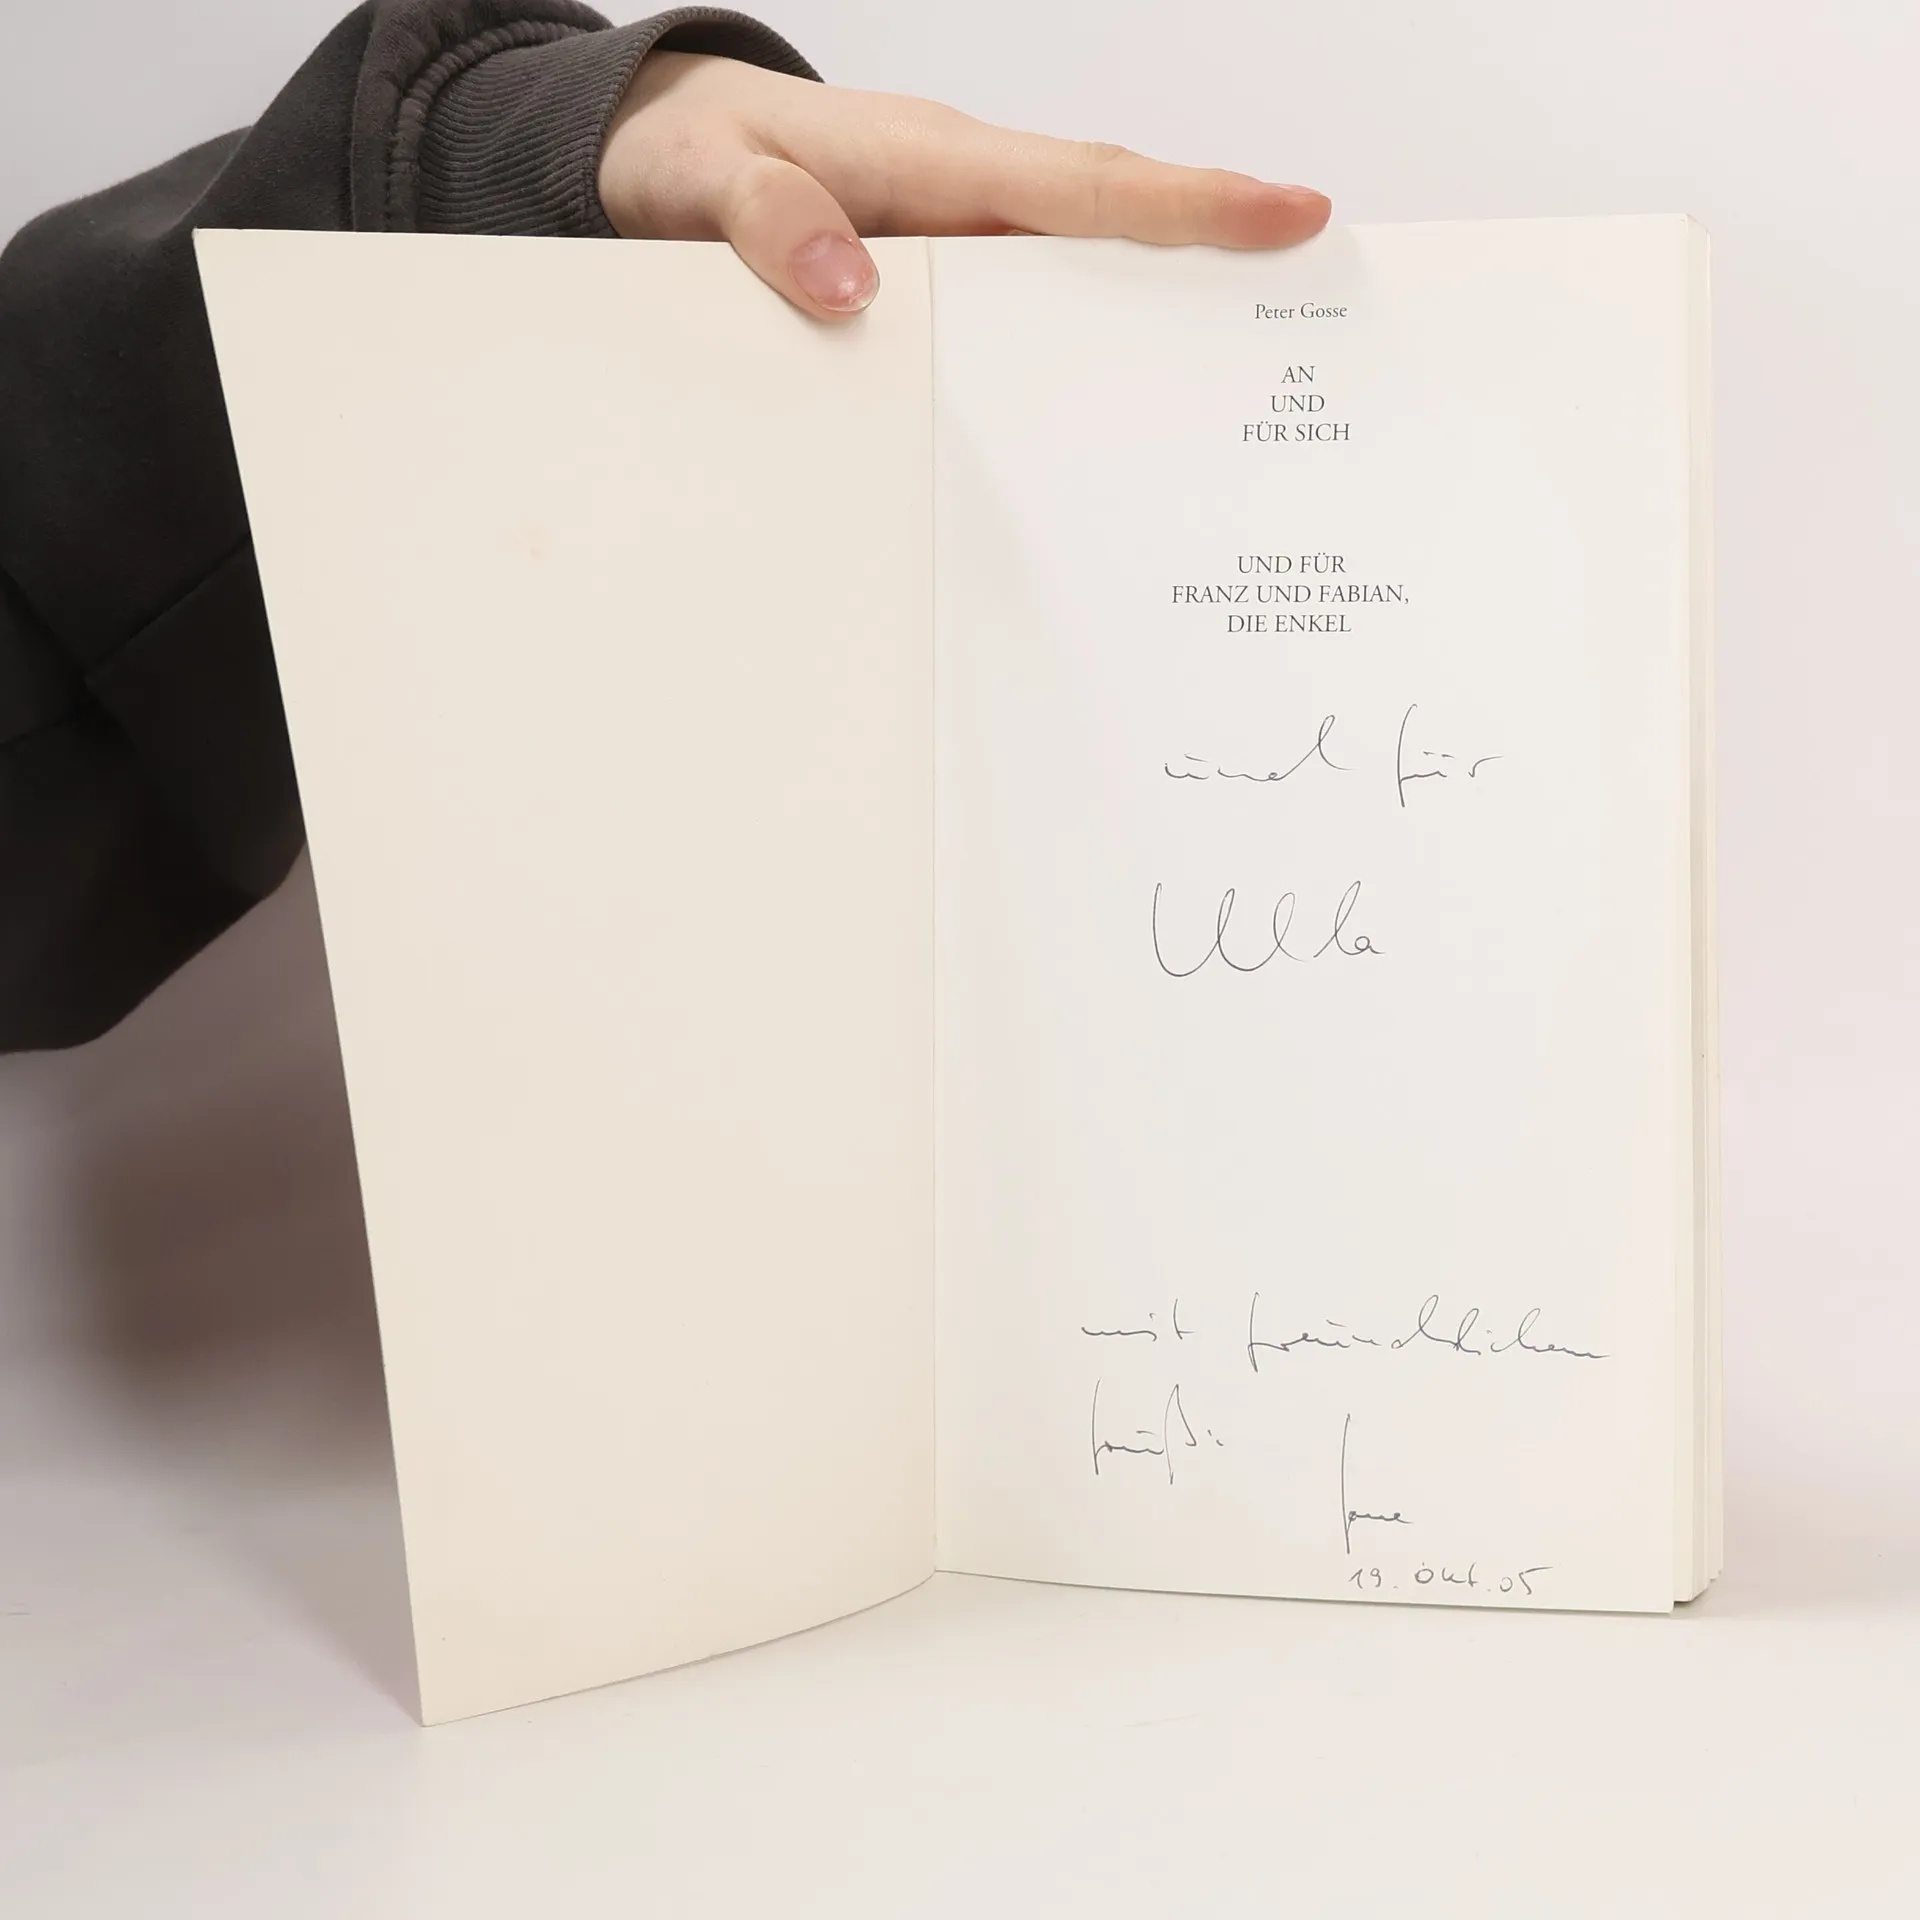 Peter Gosse
AN
UND
FÜR SICH
UND FÜR
FRANZ UND FABIAN,
DIE ENKEL
und für
Ulla
mit freundlichem
Gruß:
Gosse
19. Okt. 05